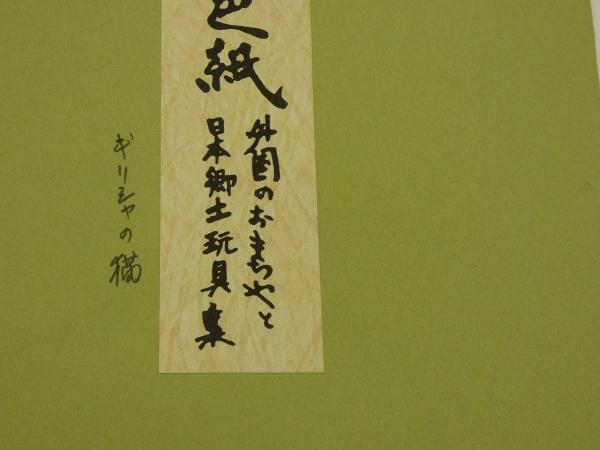 色紙
外国のおもちゃと
日本郷土玩具集
ギリシャの猫